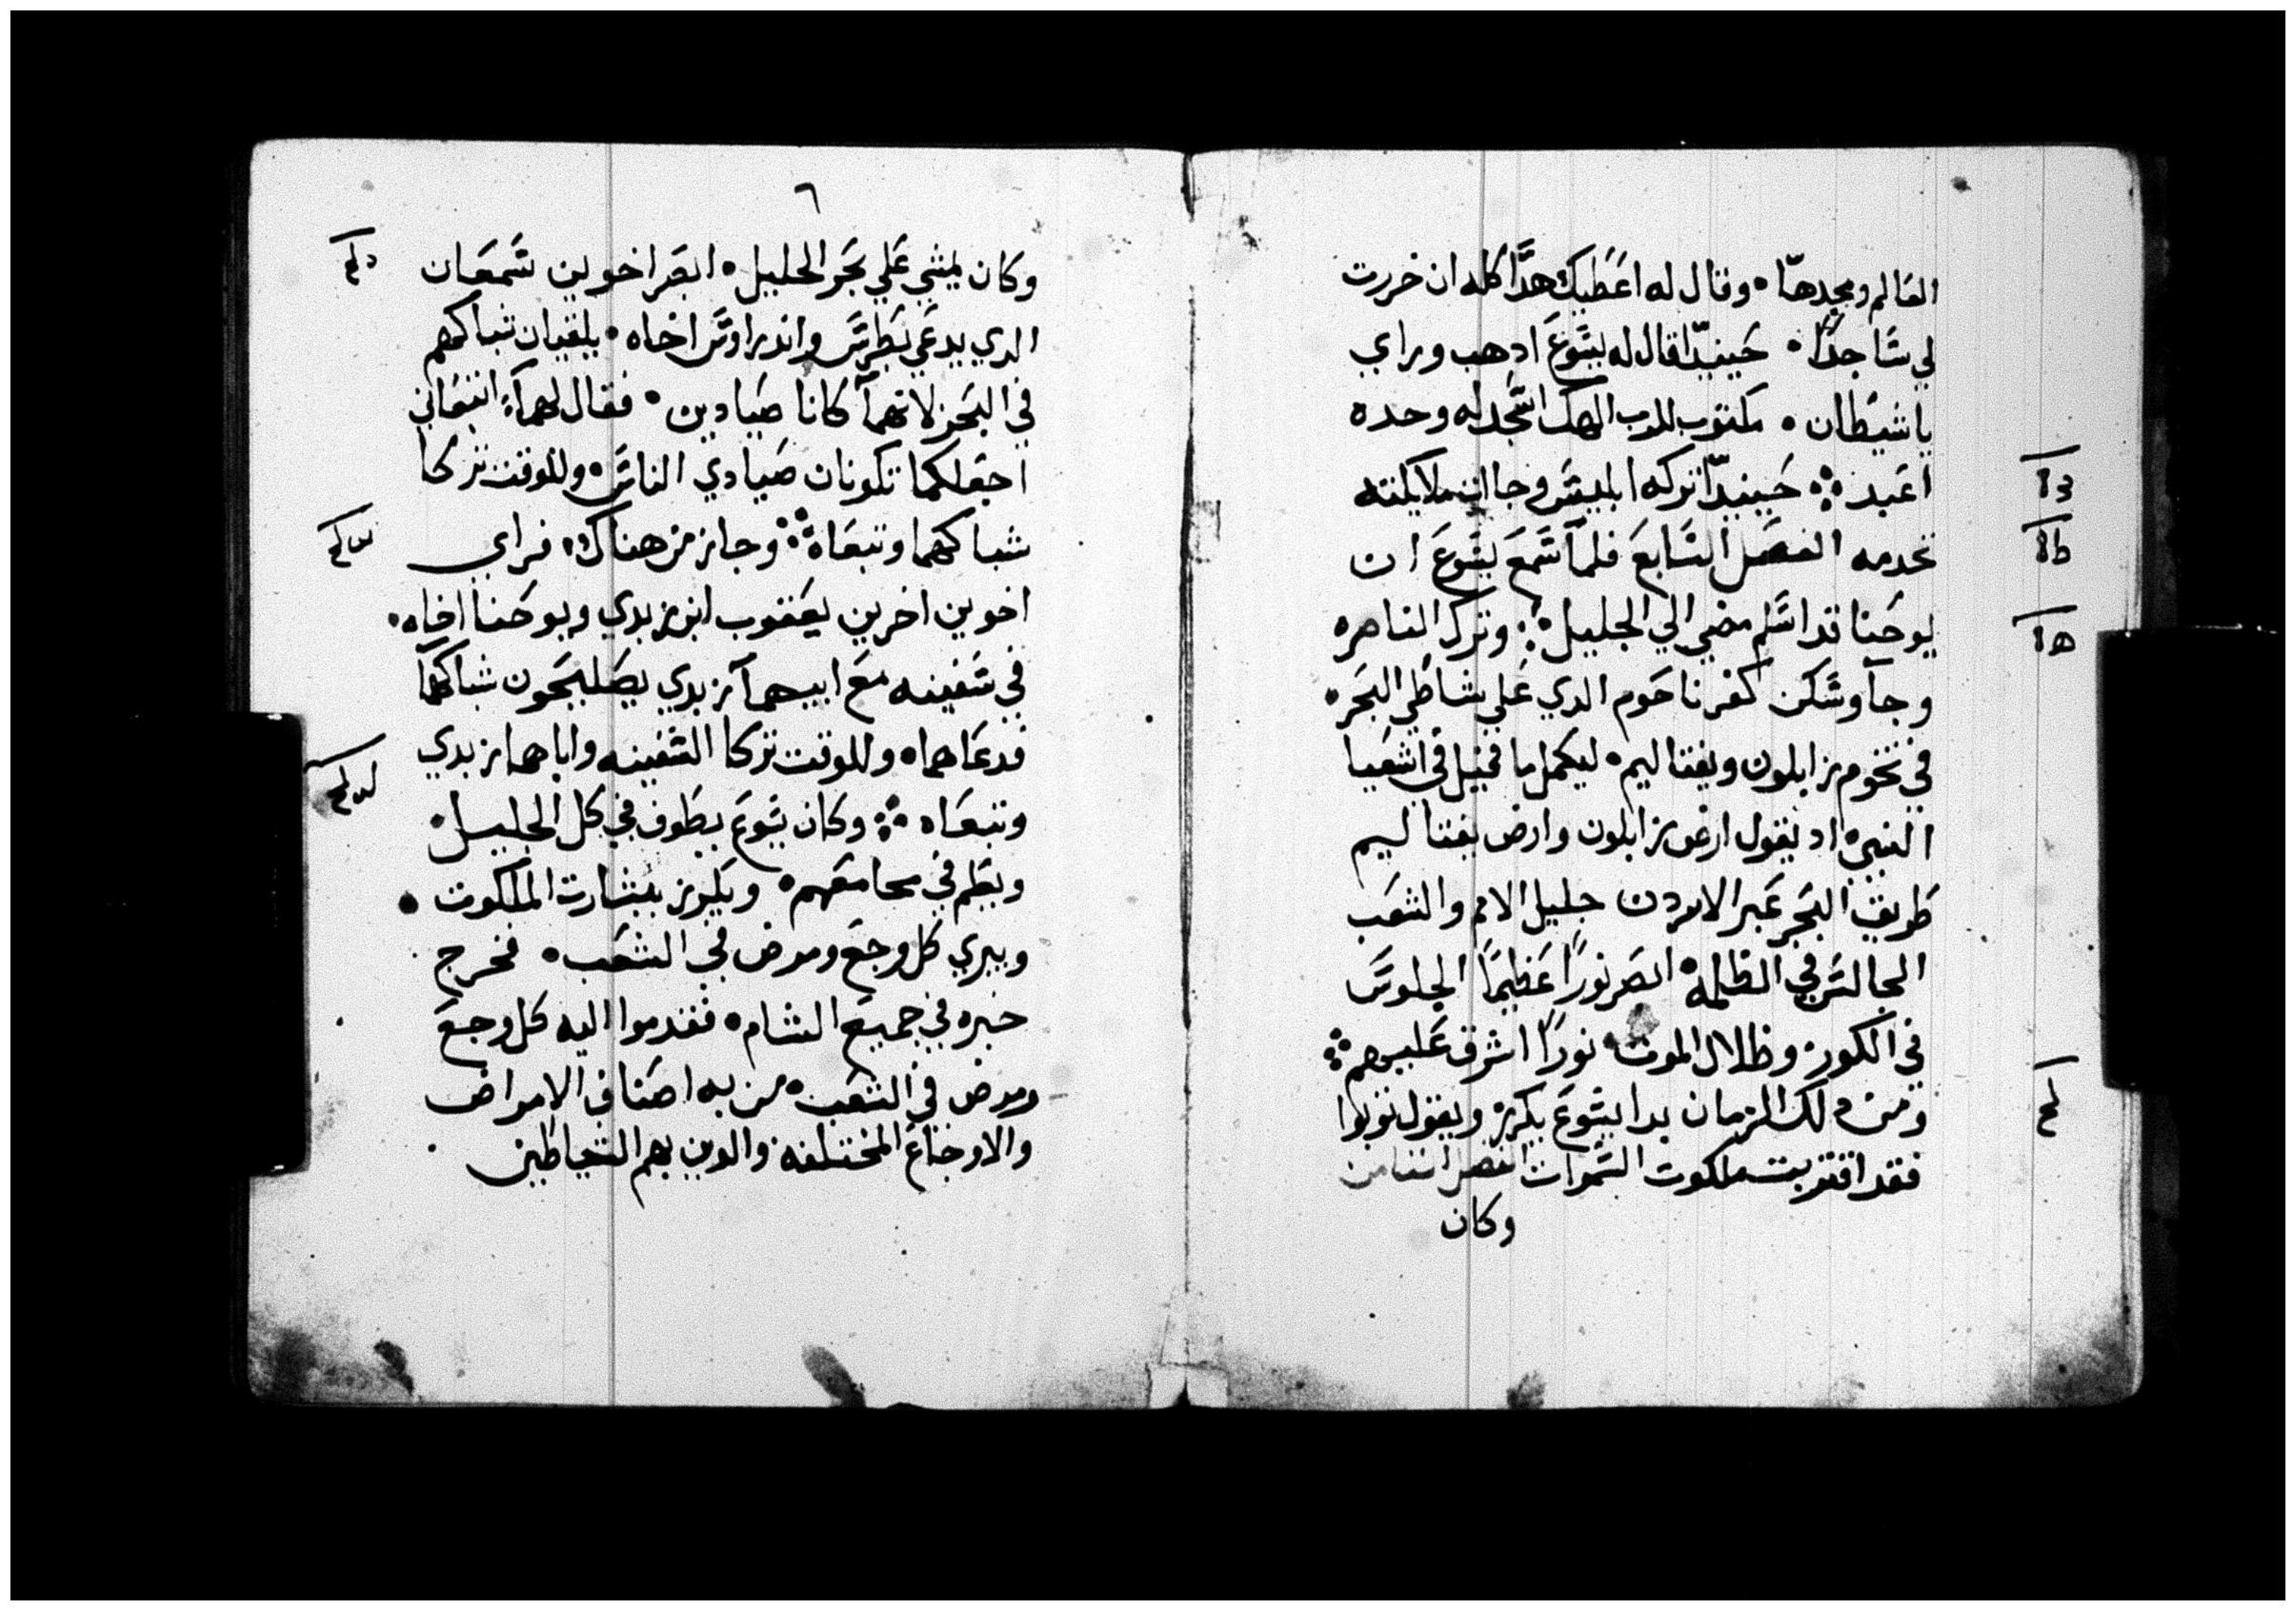 العالم ومجدها • وقال له اعطيك هدا كله ان خررت
لي ساجدًا • حينيدًا قال له يسوع ادهب وراي
ياشيطان • مكتوب للرب الهك اسجد له وحده
اعبد ⁘ حينيدًا تركه ابليس وجاات ملايكته
تخدمه الفصل السابع فلما سمع يسوع ان
يوحنا قد اسلم مضي الي الجليل ⁘ وترك الناصره
وجا وسكن كفرناحوم الدي علي شاطي البحر •
في تخوم زابلون ونفتاليم • ليكمل ما قيل في اشعيا
النبي • اد يقول ارض زابلون وارض نفتاليم
طريق البحر عبر الاردن جليل الامم والشعب
الجالس في الظلمه • ابصر نورًا عظيمًا الجلوس
في الكور وظلال الموت • نورًا اشرق عليهم ⁘
ومن دلك الزمان بدا يسوع يكرز ويقول توبوا
فقد اقتربت ملكوت السموات الفصل الثامن
وكان
٦
وكان يمشي علي بحر الجليل • ابصر اخوين سمعان
الدي يدعي بطرس واندراوس اخاه • يلقيان شباكهم
في البحر لانهما كانا صيادين • فقال لهما اتبعاني
اجعلكما تكونان صيادي الناس • وللوقت تركا
شباكهما وتبعاه ⁘ وجاز من هناك • فراي
اخوين اخرين يعقوب ابن زبدي ويوحنا اخاه •
في سفينه مع ابيهما زبدي يصلحون شباكهما
فدعاهما • وللوقت تركا السفينه واباهما زبدي
وتبعاه ⁘ وكان يسوع يطوف في كل الجليل •
ويعلم في مجامعهم • ويكرز ببشارت الملكوت •
ويبري كل وجع ومرض في الشعب • فخرج
خبره في جميع الشام • فقدموا اليه كل وجع
ومرض في الشعب • من به اصناف الامراض
والاوجاع المختلفه والدين بهم الشياطين